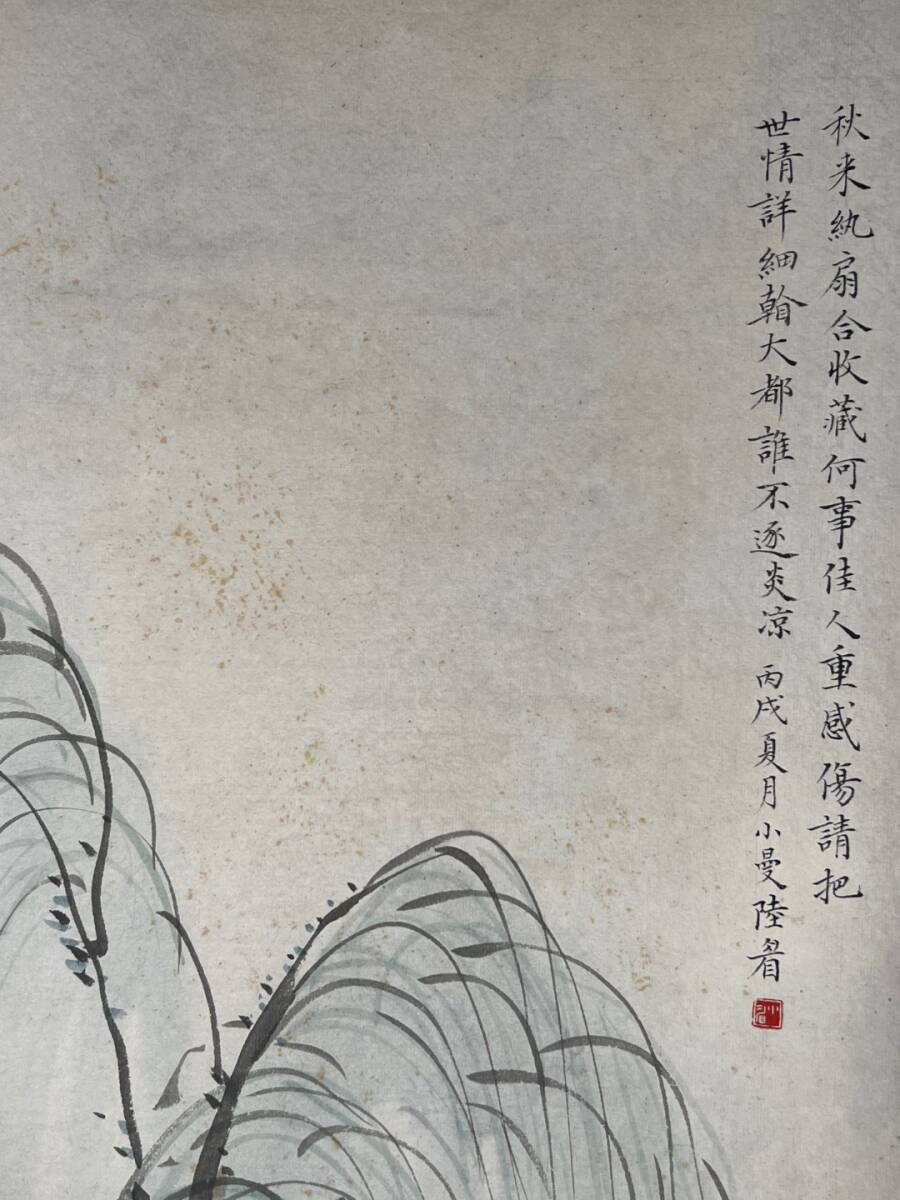 秋来紈扇合收藏何事佳人重感傷請把
世情詳細看大都誰不逐炎凉 丙戌夏月小曼陸眉